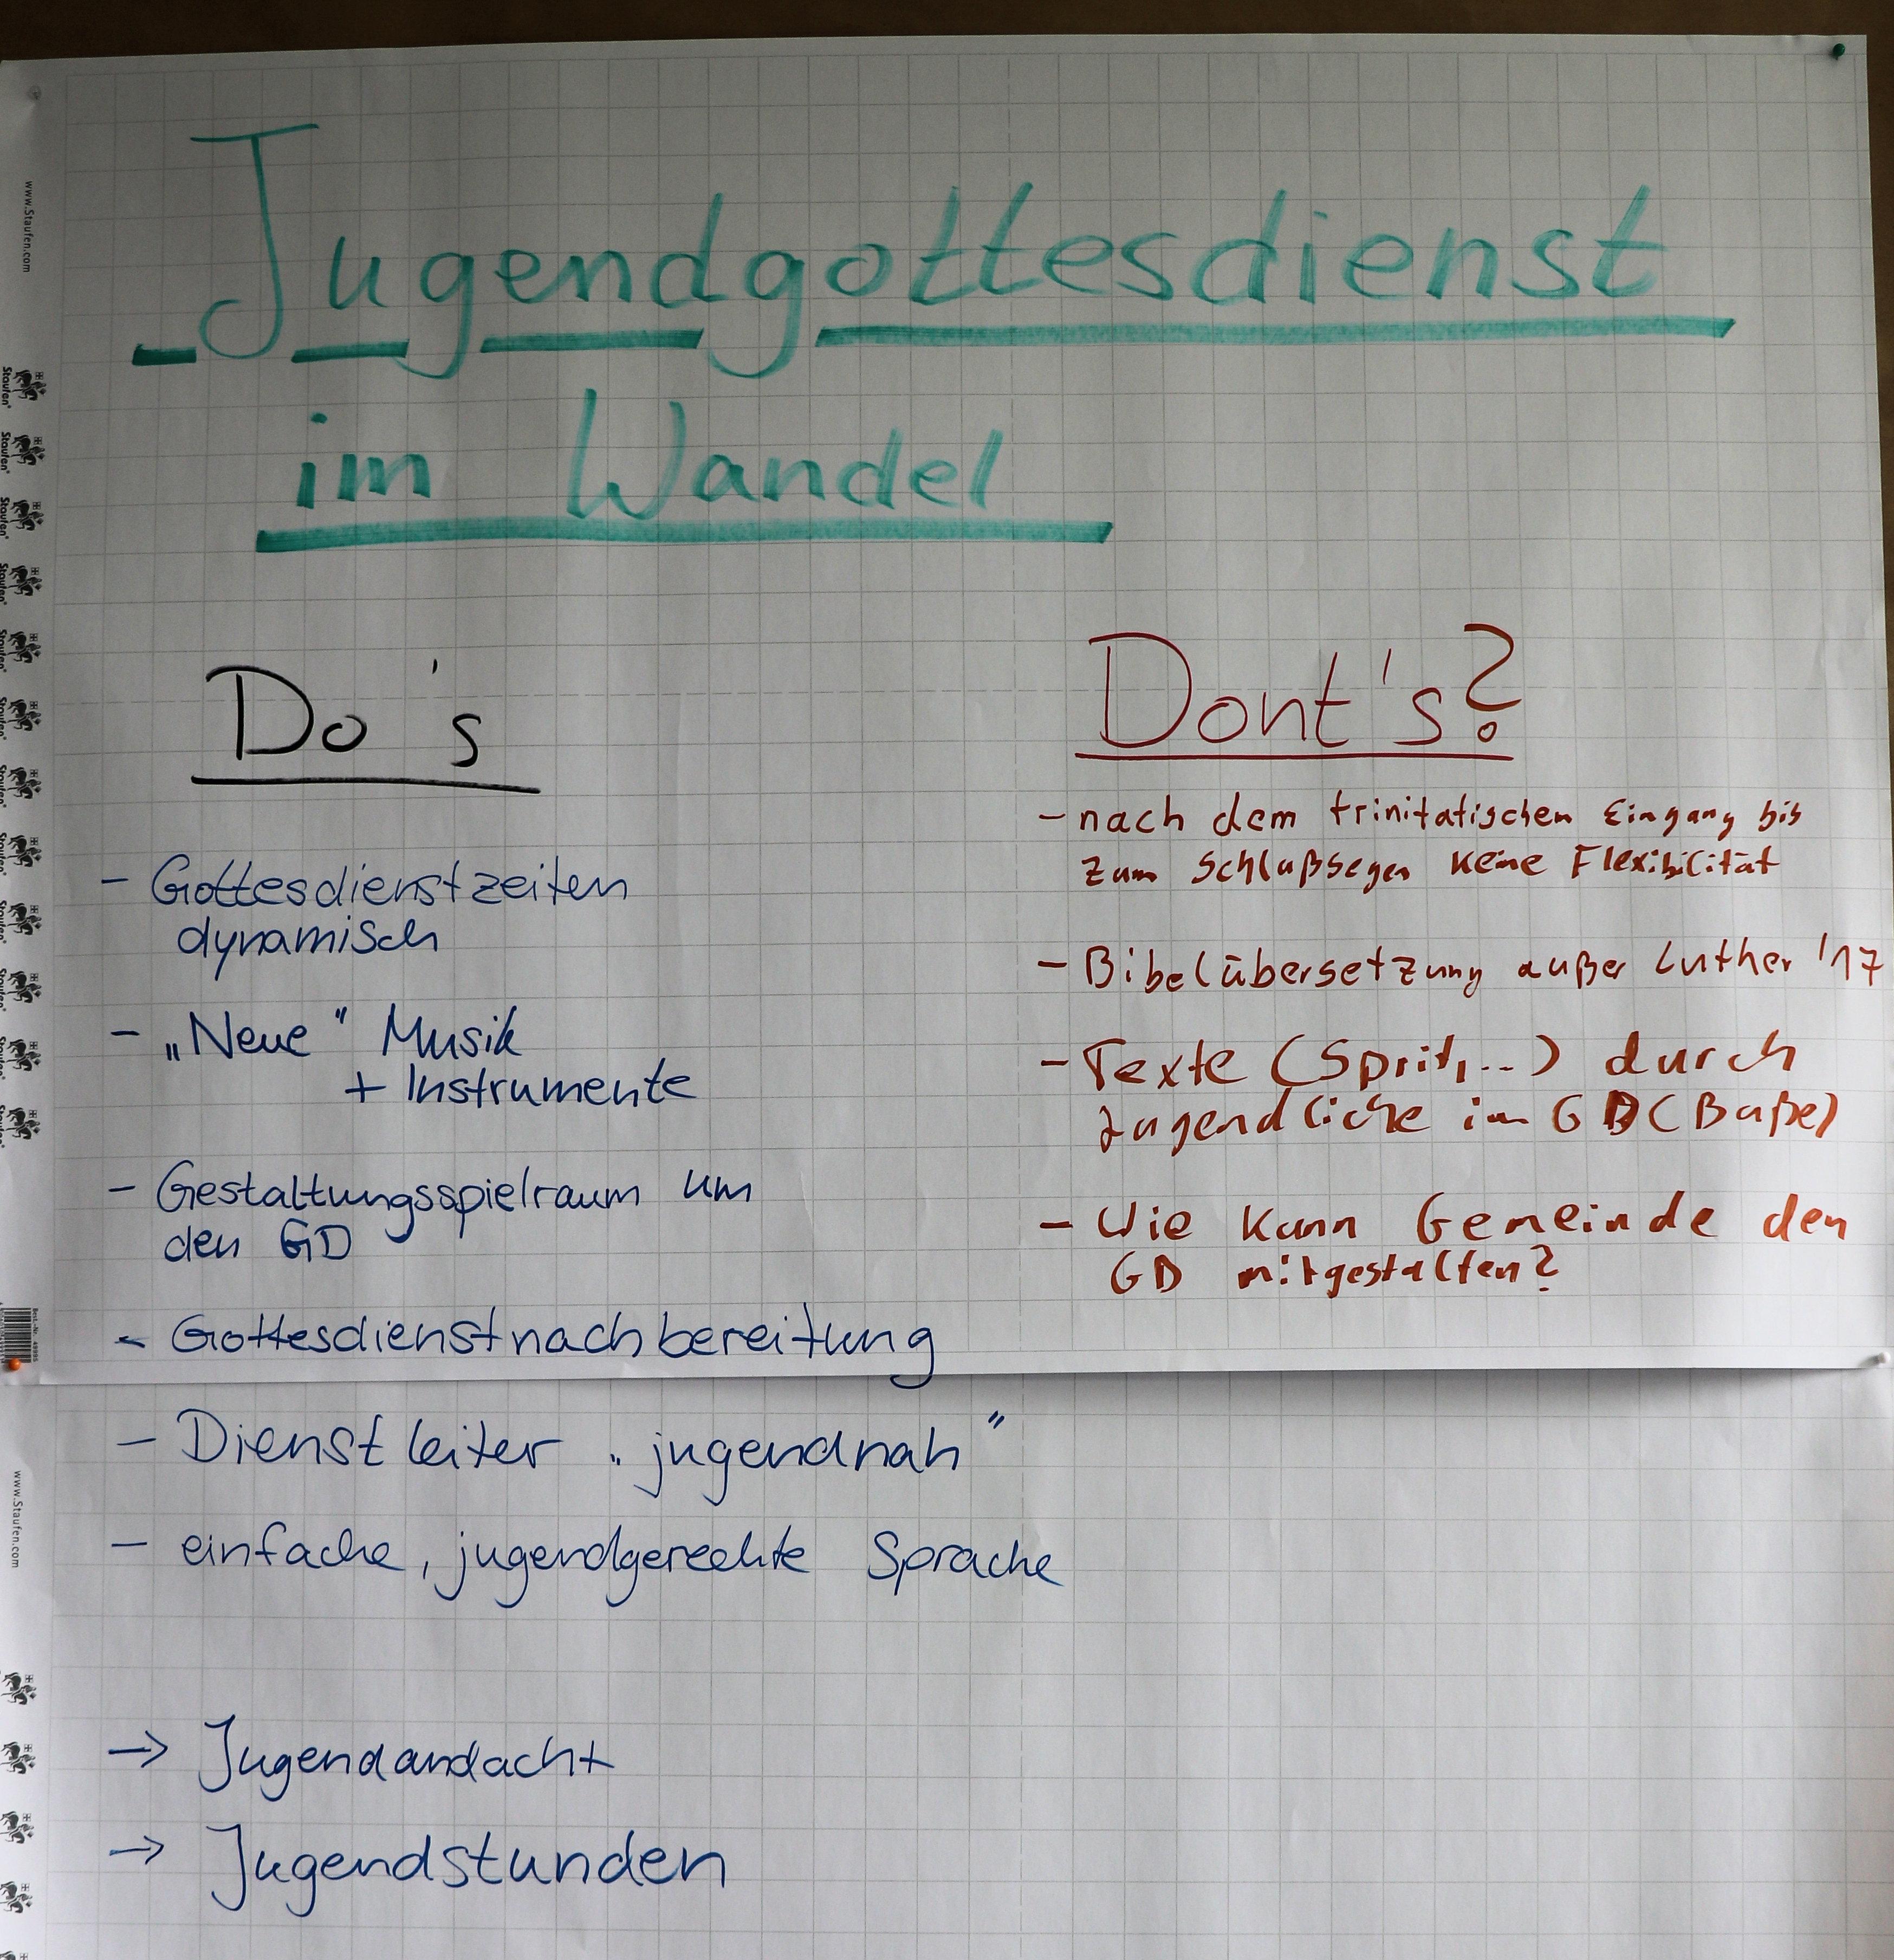 Jugendgottesdienst
im Wandel
Do's
- Gottesdienstzeiten
dynamisch
- „Neue" Musik
+ Instrumente
- Gestaltungsspielraum um
den GD
- Gottesdienstnachbereitung
- Dienstleiter „jugendnah"
- einfache, jugendgerechte Sprache
→ Jugendandacht
→ Jugendstunden
Dont's?
- nach dem trinitatischen Eingang bis
zum Schlußsegen keine Flexibilität
- Bibelübersetzung außer Luther '17
- Texte (Sprit,...) durch
Jugendliche im GD (Buße)
- Wie kann Gemeinde den
GD mitgestalten?
www.Staufen.com
Staufen
Staufen
Staufen
Staufen
Staufen
Staufen
Staufen
Staufen
Staufen
Staufen
Staufen
Staufen
www.Staufen.com